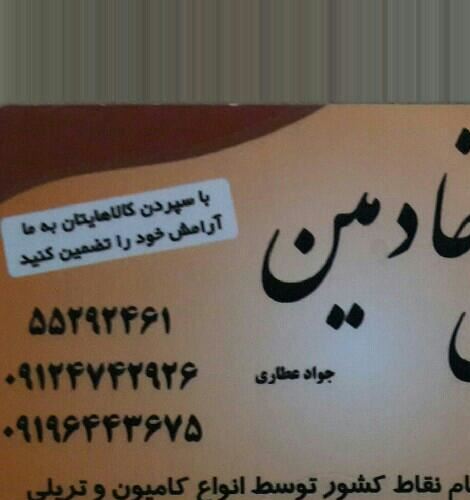 خادمین
با سپردن کالاهایتان به ما
آرامش خود را تضمین کنید
۵۵۲۹۲۴۶۱
جواد عطاری
۰۹۱۲۴۷۴۲۹۲۶
۰۹۱۹۶۴۴۳۶۷۵
نقاط کشور توسط انواع کامیون و تریلی